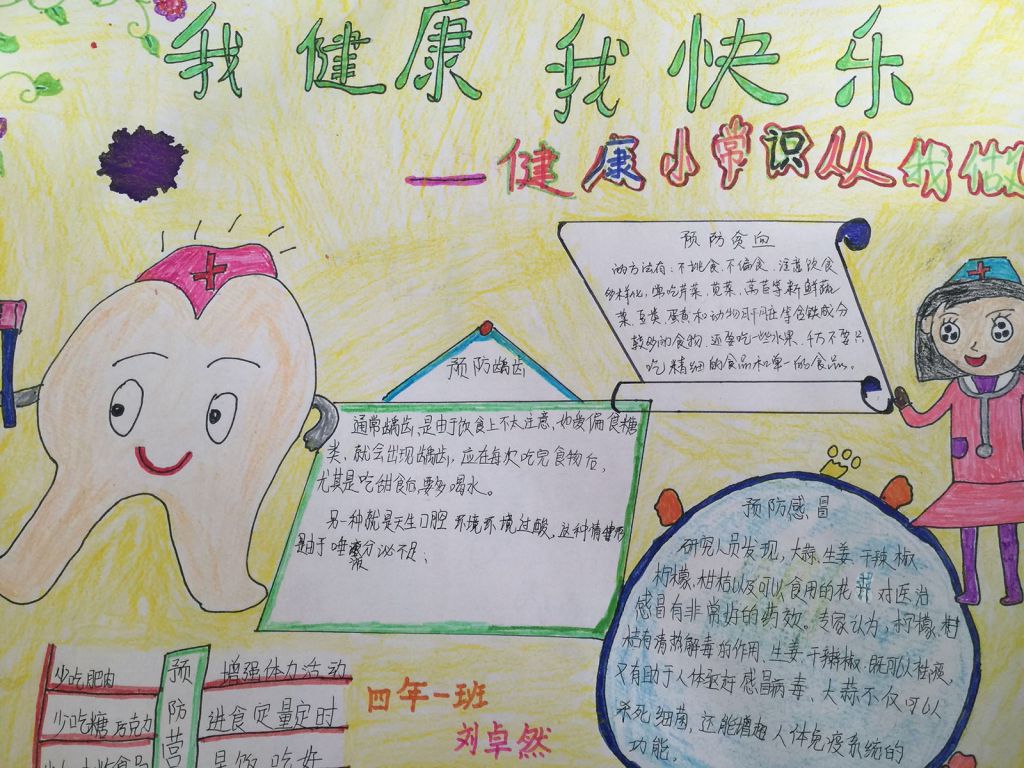 我健康我快乐
—健康小常识从我做
预防贫血
的方法有:不挑食、不偏食、注意饮食
多样化,常吃芹菜、苋菜、莴苣等新鲜蔬
菜、豆类、蛋黄和动物肝脏等含铁成分
较多的食物,还要吃一些水果,千万不要只
吃精细的食品和单一的食品。
预防龋齿
通常龋齿,是由于饮食上不太注意,也爱偏食糖
类,就会出现龋齿,应在每次吃完食物后,
尤其是吃甜食后要多喝水。
另一种就是天生口腔环境环境过酸,这种情
是由于唾液分泌不足、
预防感冒
研究人员发现,大蒜、生姜、干辣椒
柠檬、柑桔以及可以食用的花 对医治
感冒有非常好的药效。专家认为,柠檬、柑
桔有清热解毒的作用、生姜、干辣椒既可以祛痰,
又有助于人体 感冒病毒、大蒜不仅可以
杀死细菌,还能增 人体免疫系统的
功能。
少吃肥肉
少吃糖 巧克力
预
防
营
增强体力活动
进食定量定时
四年一班
刘卓然